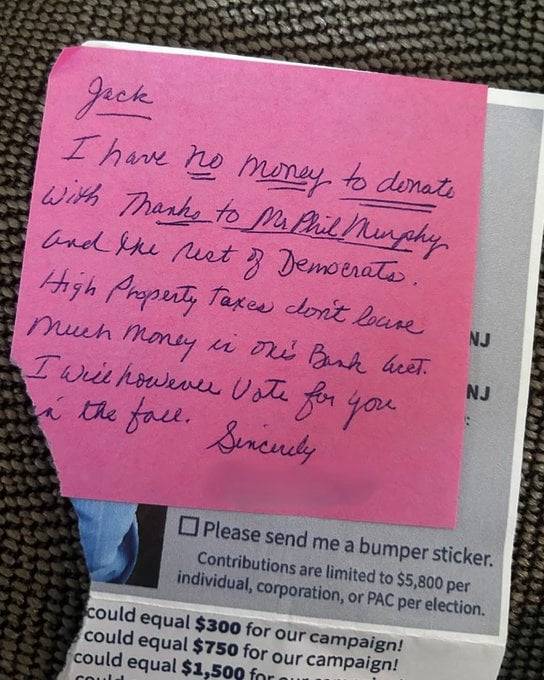 Jack
I have no money to donate
with Thanks to Mr Phil Murphy
and the rest of Democrats.
High Property Taxes don't leave
much money in one's Bank Acct.
I will however Vote for you
in the fall.
Sincerely
NJ
NJ
:
☐ Please send me a bumper sticker.
Contributions are limited to $5,800 per
individual, corporation, or PAC per election.
could equal $300 for our campaign!
could equal $750 for our campaign!
could equal $1,500 for our
could